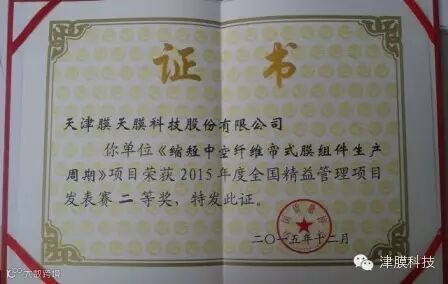 证书
天津膜天膜科技股份有限公司
你单位《缩短中空纤维帘式膜组件生产
周期》项目荣获2015年度全国精益管理项目
发表赛二等奖，特发此证。
二〇一五年十二月
津膜科技
大数跨境